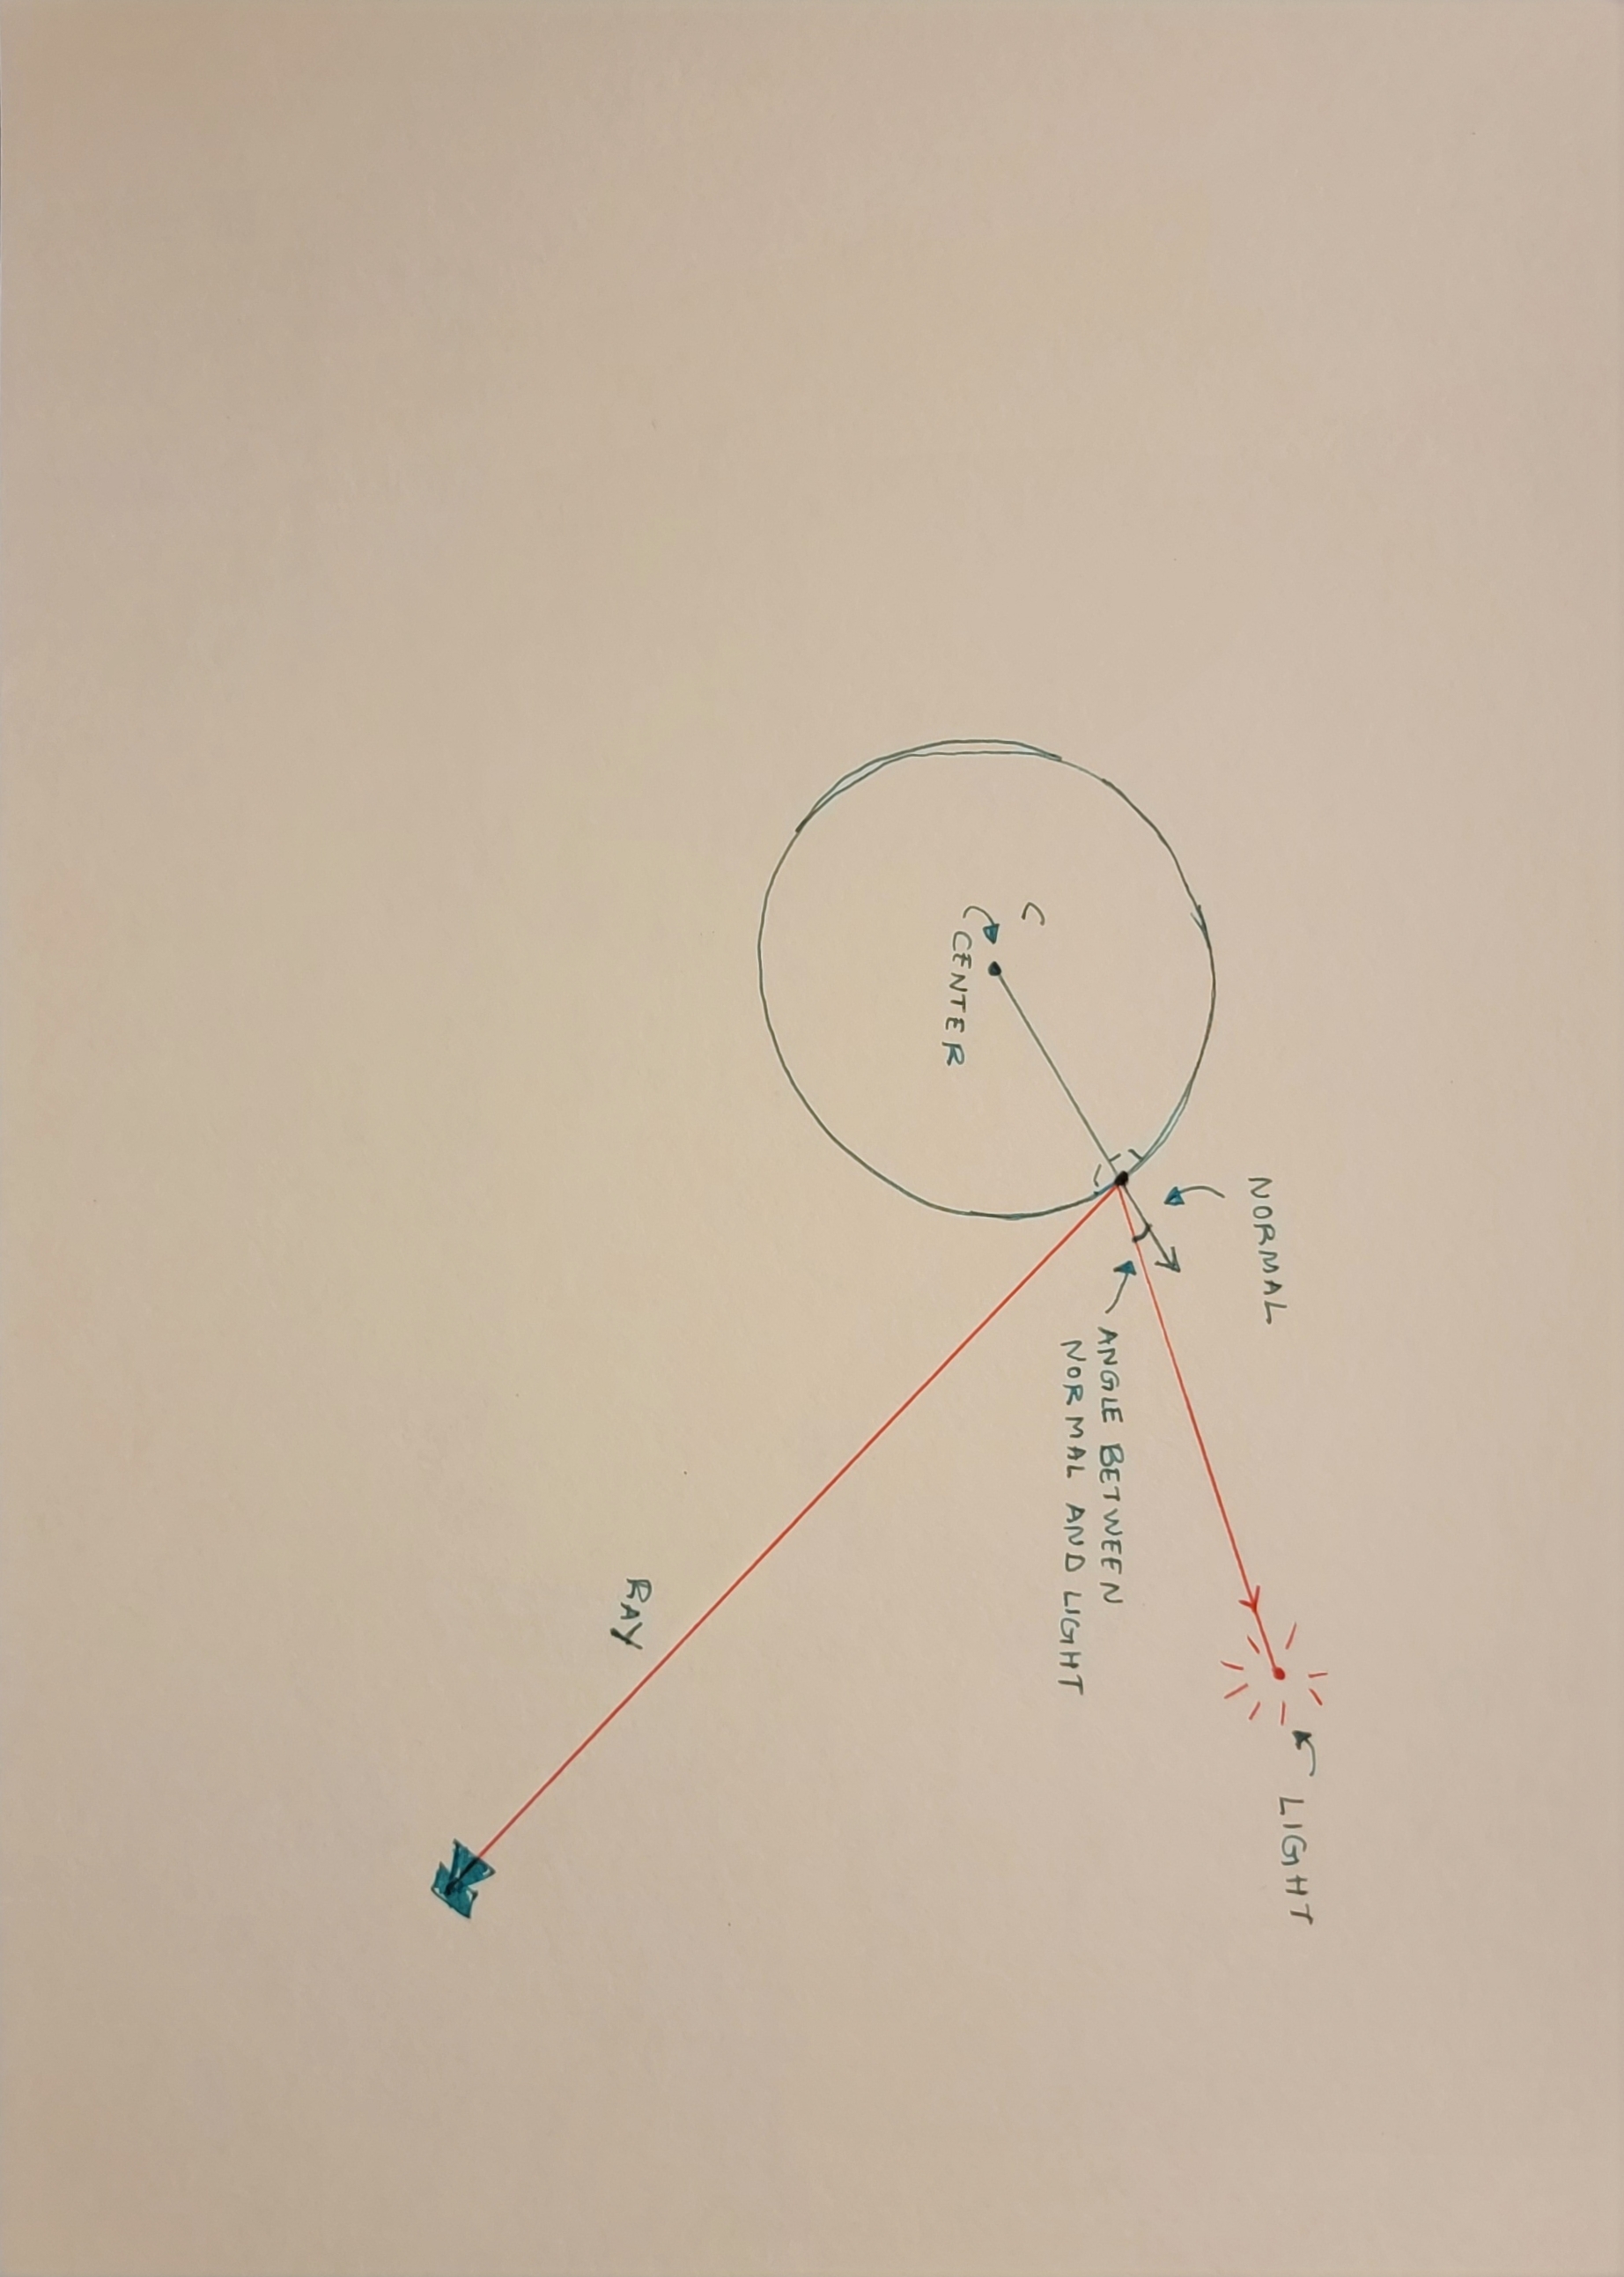 LIGHT
NORMAL
ANGLE BETWEEN
NORMAL AND LIGHT
C
CENTER
RAY